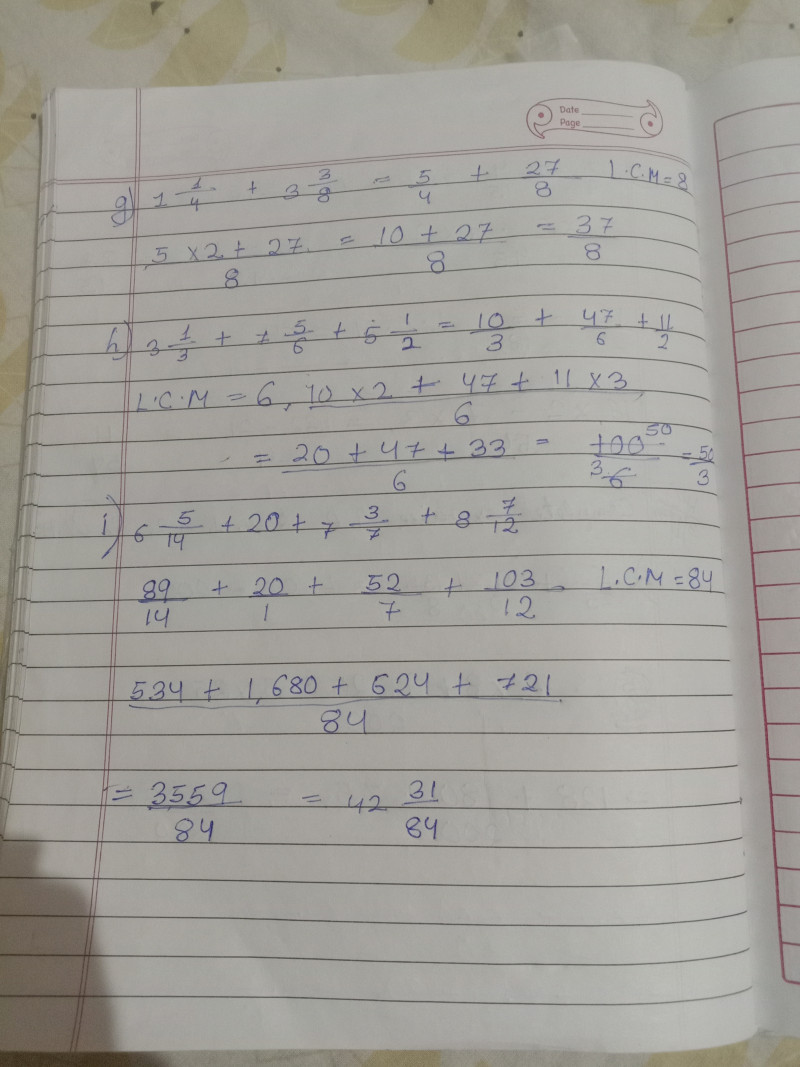 Date
Page
g) 1 1/4 + 3 3/8 = 5/4 + 27/8 L.C.M = 8
5 × 2 + 27 / 8 = 10 + 27 / 8 = 37/8
h) 3 1/3 + 7 5/6 + 5 1/2 = 10/3 + 47/6 + 11/2
L.C.M = 6, 10 × 2 + 47 + 11 × 3 / 6
= 20 + 47 + 33 / 6 = 100 50 / 3 6 = 50/3
i) 6 5/14 + 20 + 7 3/7 + 8 7/12
89/14 + 20/1 + 52/7 + 103/12, L.C.M = 84
534 + 1,680 + 624 + 721 / 84
= 3559/84 = 42 31/84